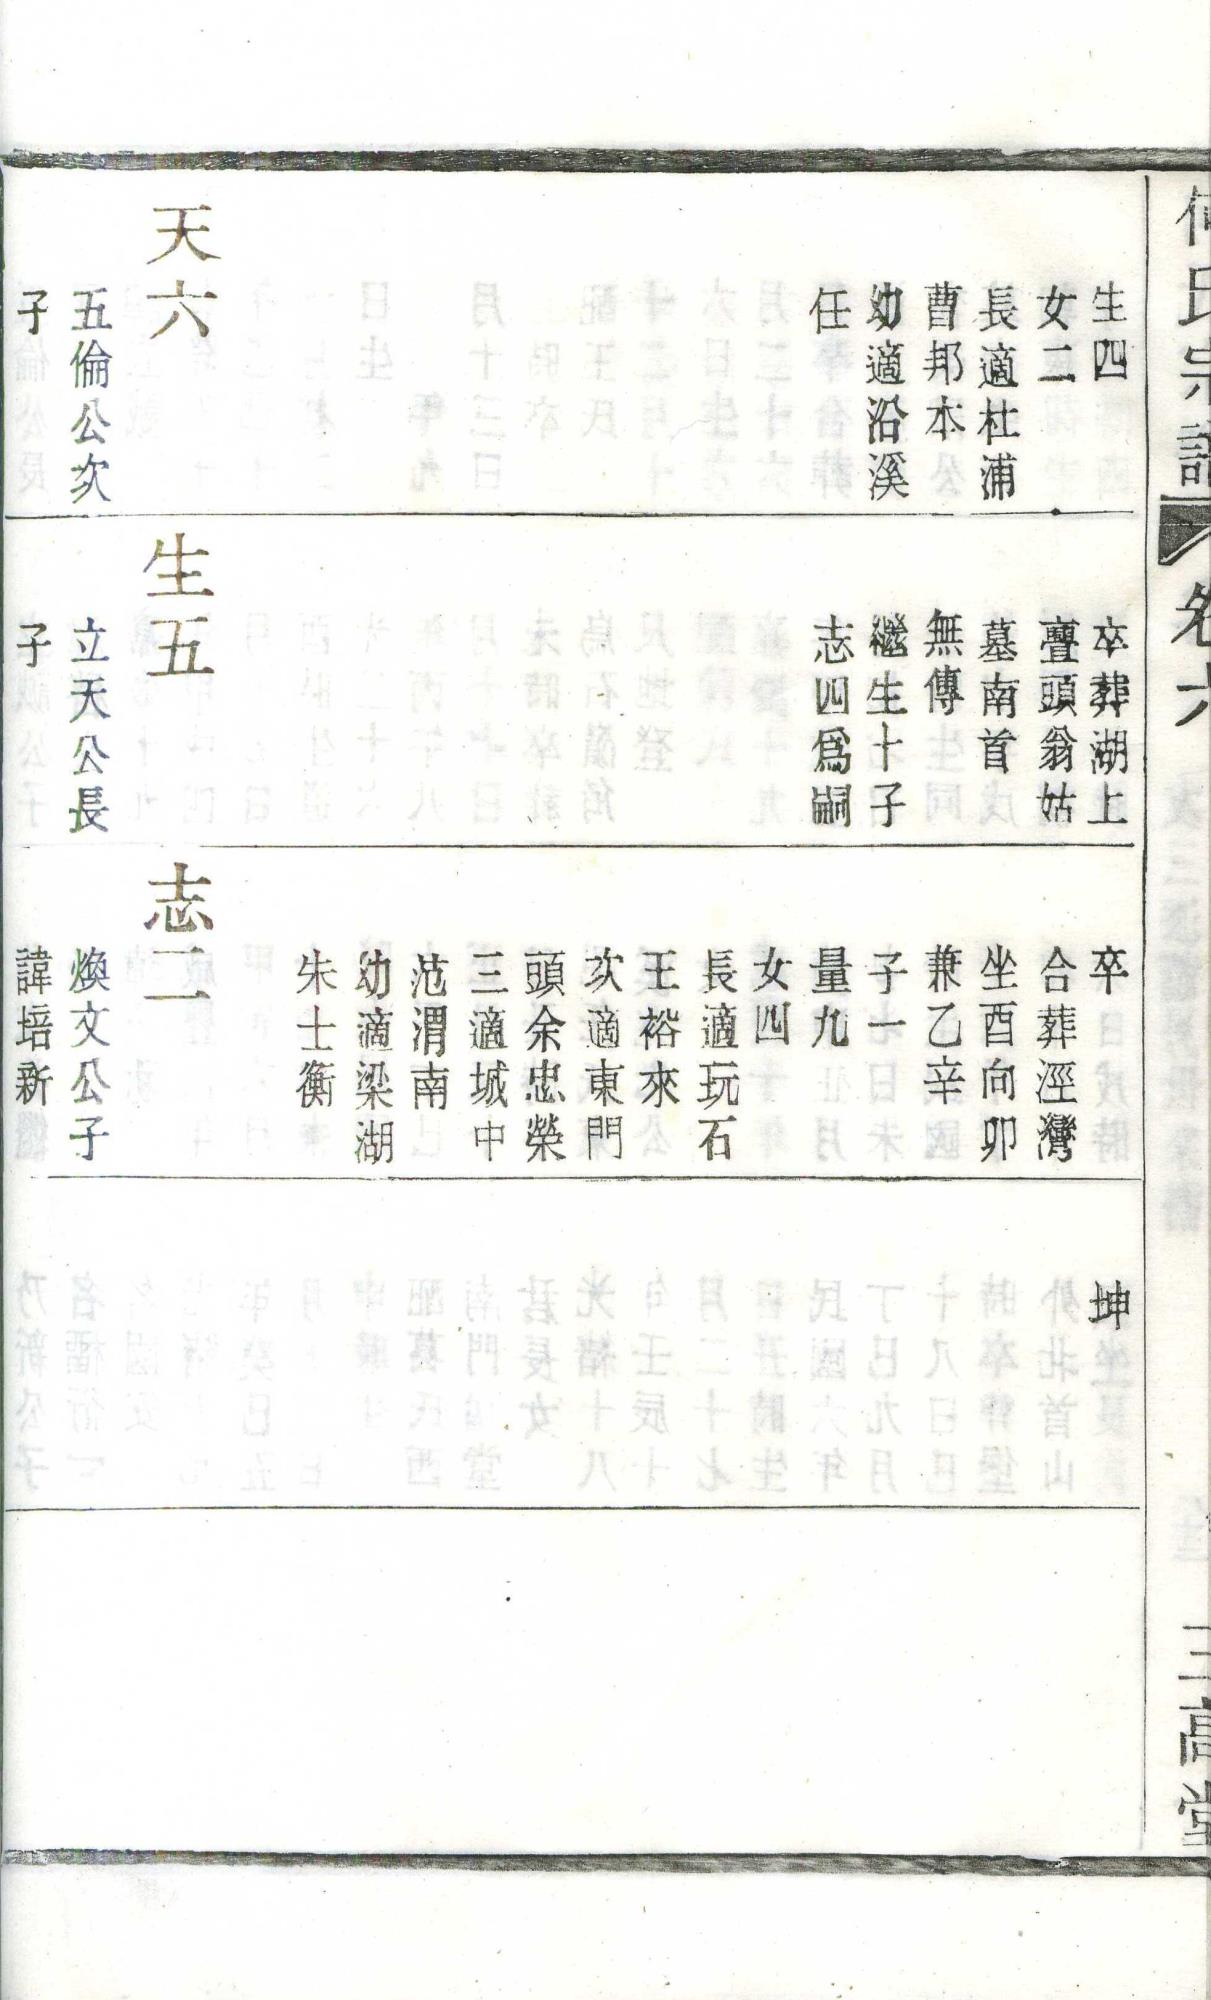 何氏宗譜
卷六
三高堂
生四
女二
長適杜浦
曹邦本
幼適沿溪
任
天六
五倫公次
子
卒葬湖上
亹頭翁姑
墓南首
無傳
繼生十子
志四爲嗣
生五
立天公長
子
卒
合葬涇灣
坐酉向卯
兼乙辛
子一
量九
女四
長適玩石
王裕來
次適東門
頭余忠榮
三適城中
范渭南
幼適梁湖
朱士衡
志二
煥文公子
諱培新
坤